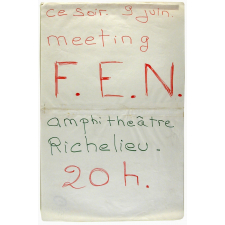 ce soir. 9 juin.
meeting
F.E.N.
amphithéâtre
Richelieu.
20h.